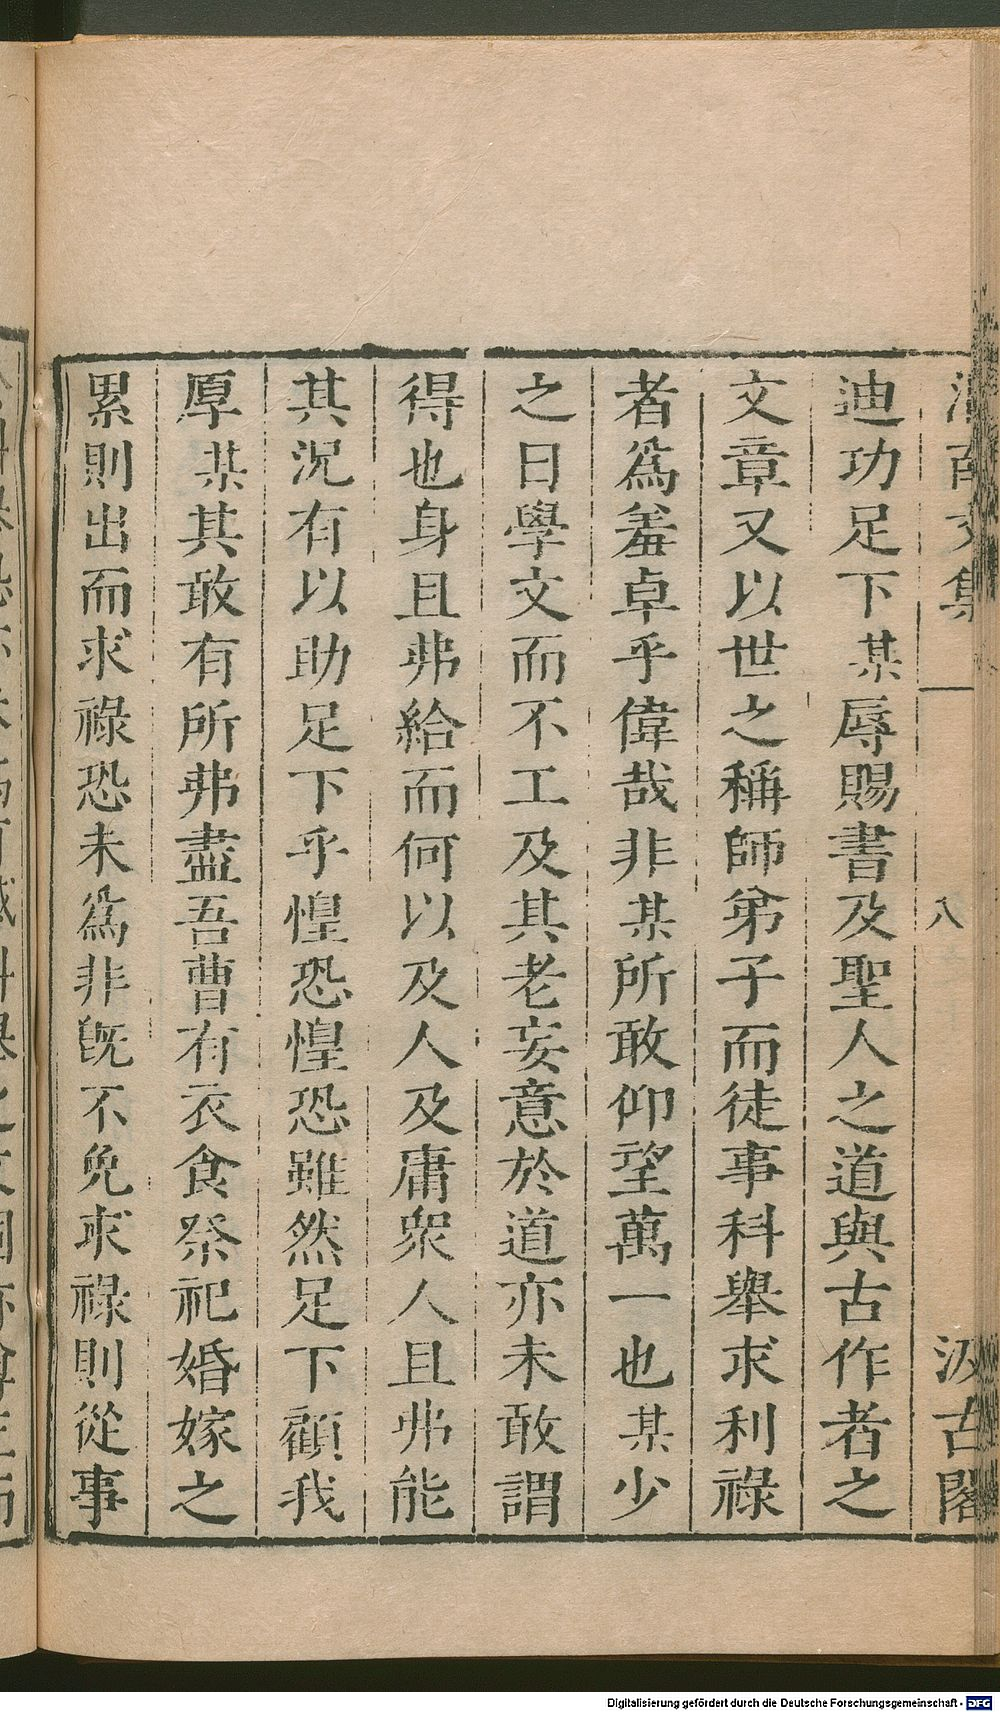 文集
八
汲古閣
迪功足下某辱賜書及聖人之道與古作者之
文章又以世之稱師弟子而徒事科舉求利祿
者爲羞卓乎偉哉非某所敢仰望萬一也某少
之日學文而不工及其老妄意於道亦未敢謂
得也身且弗給而何以及人及庸衆人且弗能
其況有以助足下乎惶恐惶恐雖然足下顧我
厚某其敢有所弗盡吾曹有衣食祭祀婚嫁之
累則出而求祿恐未爲非旣不免求祿則從事
Digitalisierung gefördert durch die Deutsche Forschungsgemeinschaft - DFG